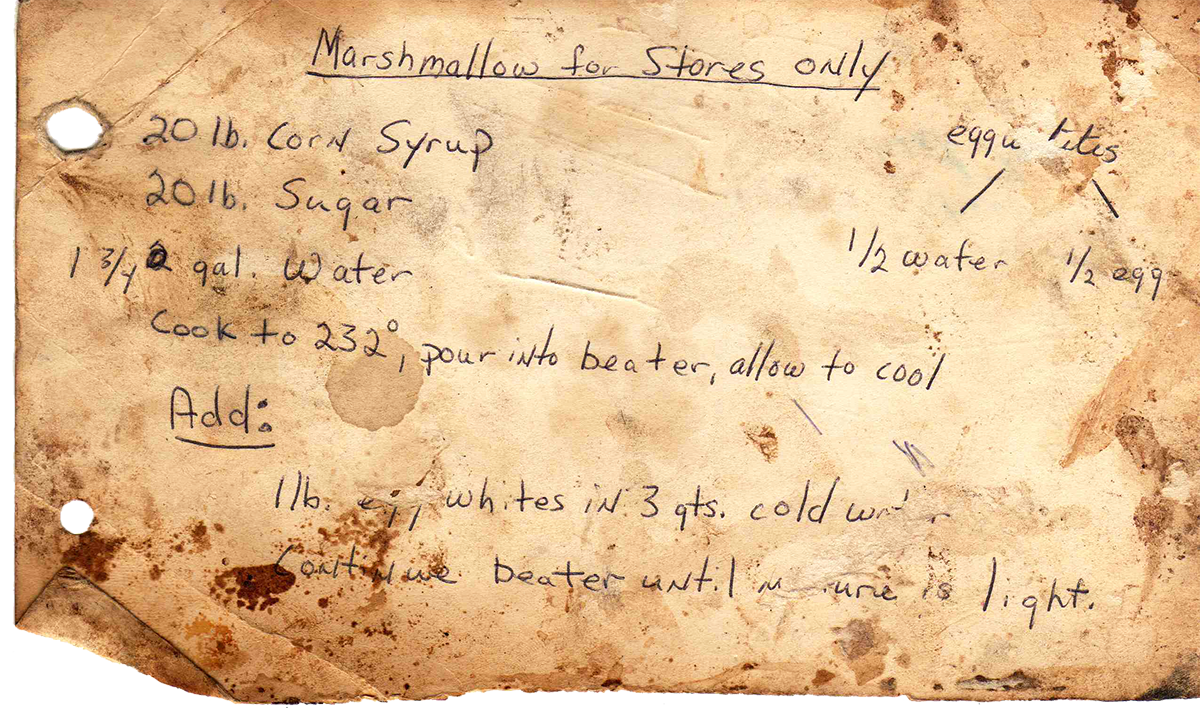 Marshmallow for Stores only
20 lb. Corn Syrup
20 lb. Sugar
1 3/4 gal. Water
eggw
1/2 water 1/2 egg
Cook to 232°, pour into beater, allow to cool
Add:
1 lb. egg whites in 3 qts. cold
Continue beater until is light.